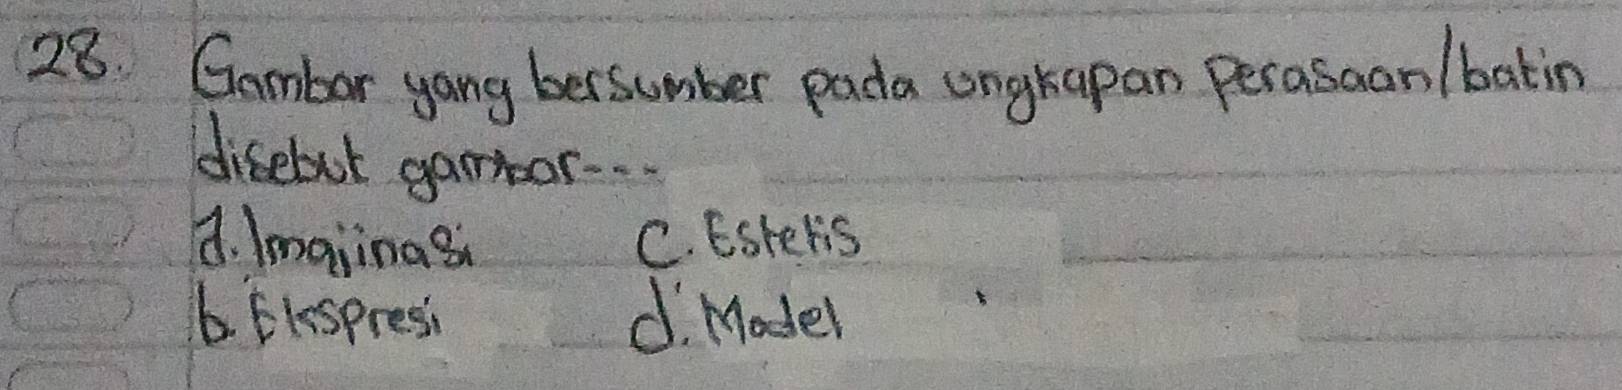 28. Gambar yang bersumber pada ungkapan perasaan/batin
disebut gambar...
a. Imajinasi c. Estetis
b. Ekspresi d. Model